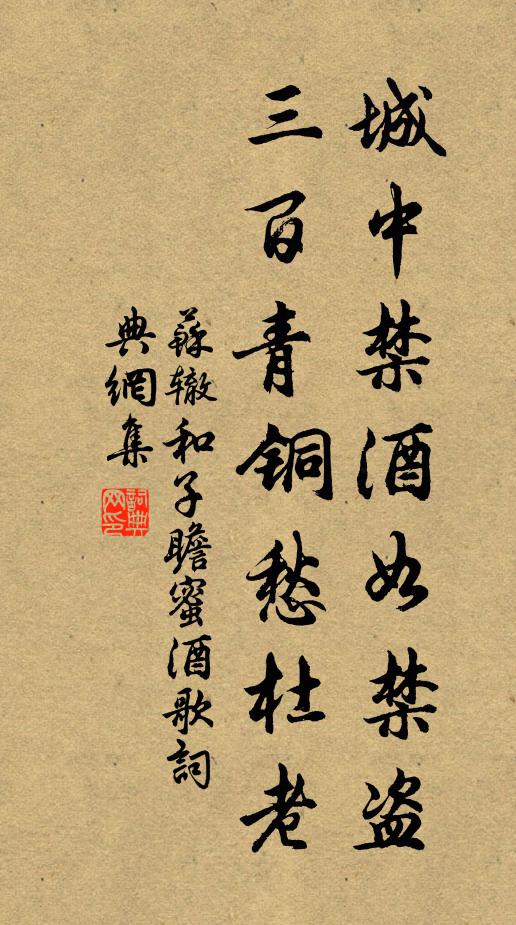 城中禁酒如禁盗
三百青铜愁杜老
蘇辙和子瞻蜜酒歌詞
典網集
詞典網印